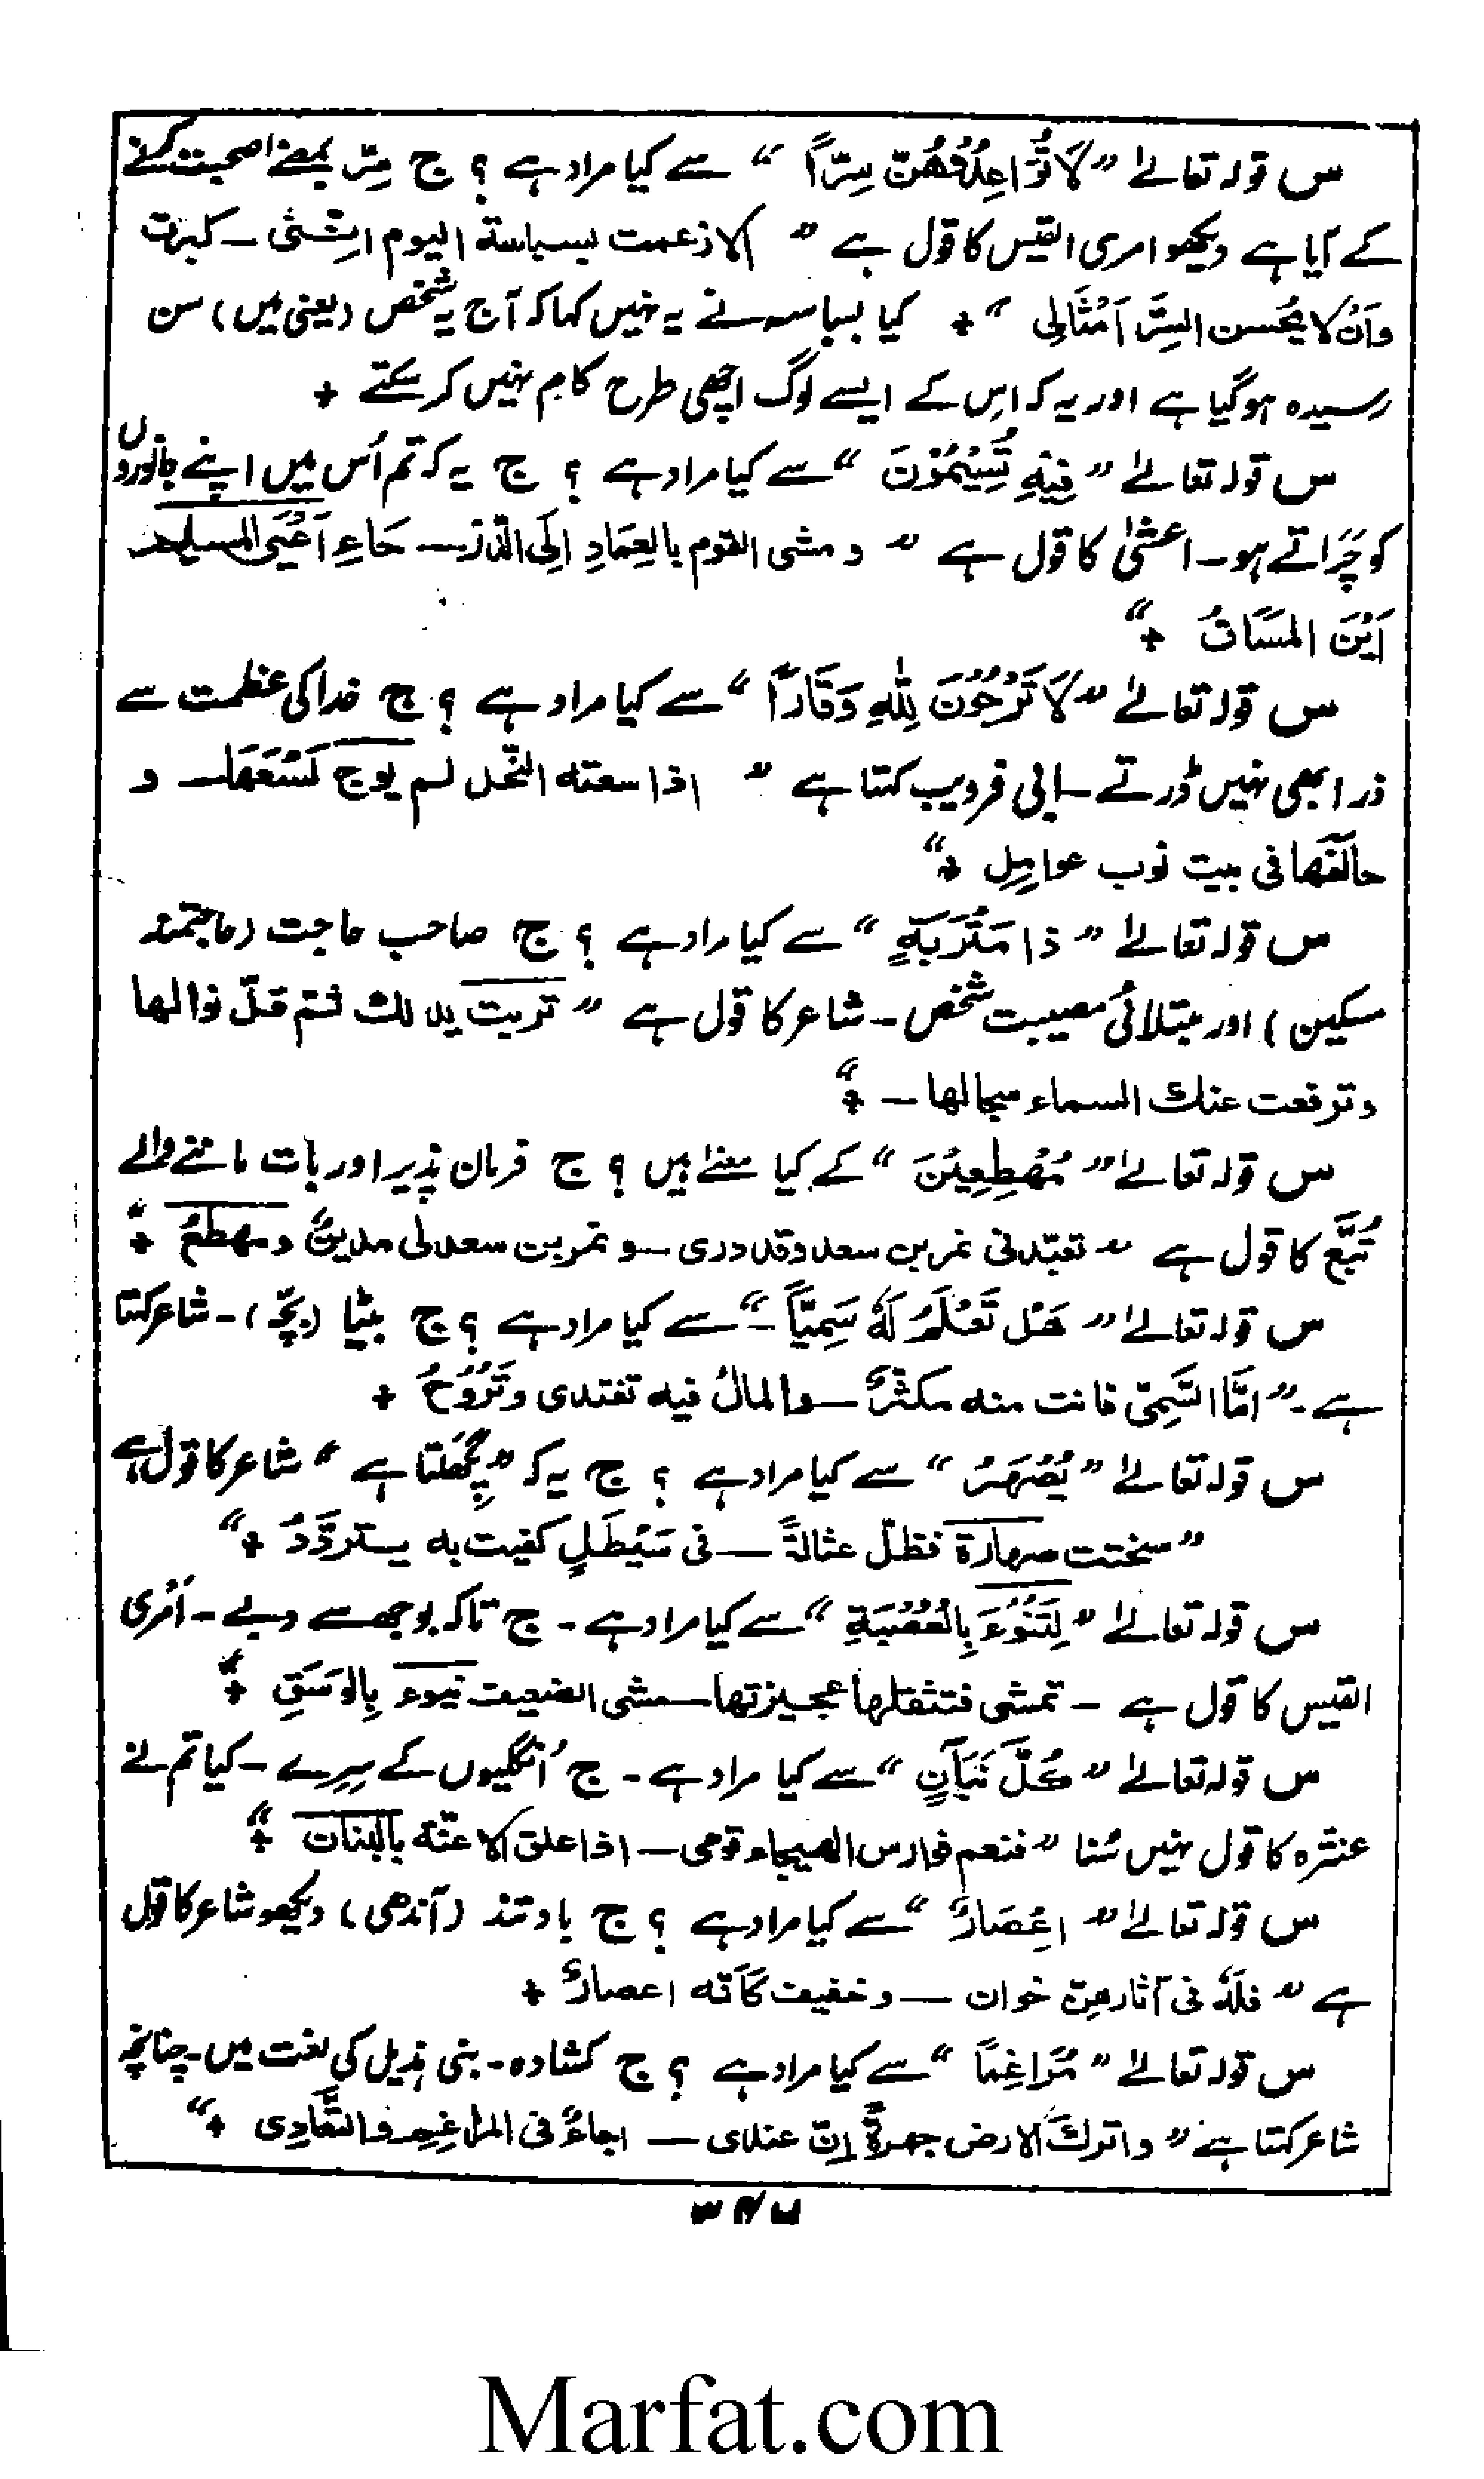 س قولہ تعالےٰ "لَا تُوَاعِدُوْهُنَّ سِرّاً" سے کیا مراد ہے ؟ ج سِرّ بمعنے صحبت کرنے
کے آیا ہے دیکھو امری القیس کا قول ہے " الا زعمت بسباسة الیوم اننی – کبرت
وَاَنْ لا یحسن السِرَّ اَمْثَالی " + کیا بسباسہ نے یہ نہیں کہا کہ آج یہ شخص (یعنی میں) سن
رسیدہ ہوگیا ہے اور یہ کہ اس کے ایسے لوگ اچھی طرح کام نہیں کر سکتے +
س قولہ تعالےٰ "فِيْهِ تُسِيْمُوْنَ" سے کیا مراد ہے ؟ ج یہ کہ تم اُس میں اپنے جانوروں
کو چَراتے ہو – اعشیٰ کا قول ہے " و مشی القوم بالعِمَادِ اِلَى الدّرَ – حَاءِ اَعْیَی المسیم
اَیْنَ المَسَاقُ +"
س قولہ تعالےٰ "لَا تَرْجُوْنَ لِلّٰهِ وَقَارًا" سے کیا مراد ہے ؟ ج خدا کی عظمت سے
ذرا بھی نہیں ڈرتے – ابی ذویب کہتا ہے " اذا سعته النّحل لم یرج لَسْعَهَا – و
حالفها فی بیت نوب عوامِلِ +"
س قولہ تعالےٰ "ذا مَتْرَبَةٍ" سے کیا مراد ہے ؟ ج صاحب حاجت (حاجتمند
مسکین) اور مبتلائے مصیبت شخص – شاعر کا قول ہے "تربت ید لك ثم قلّ نوالها
وترفعت عنك السماء سجالها – +"
س قولہ تعالےٰ "مُهْطِعِيْنَ" کے کیا معنےٰ ہیں ؟ ج فرمان پذیر اور بات ماننے والے
تُبَّع کا قول ہے "تعبّدنی نمر بن سعد وقد دری – و نمر بن سعد لی مدینٌ ومهطعٌ +"
س قولہ تعالےٰ "هَلْ تَعْلَمُ لَهٗ سَمِيًّا" – سے کیا مراد ہے ؟ ج بیٹا (بچّہ) – شاعر کہتا
ہے – "امّا السَّمِیّ فانت منه مکثرٌ – والمالُ فیه تغتدی وتَرُوْحُ +
س قولہ تعالےٰ "يُصْهَرُ" سے کیا مراد ہے ؟ ج یہ کہ "پگھلتا ہے" شاعر کا قول ہے
"سخنت صهارة فظلّ عثالةً – فی سَیْطَلٍ کفیت به یتردّدُ +"
س قولہ تعالےٰ "لَتَنُوْءُ بِالْعُصْبَةِ" سے کیا مراد ہے – ج تاکہ بوجھ سے دبے – اَمْری
القیس کا قول ہے – تمشی فتثقلها عجیزتها – مشی الضعیف ینوء بِالوَسَقِ +"
س قولہ تعالےٰ "كُلَّ بَنَانٍ" سے کیا مراد ہے – ج اُنگلیوں کے سِرے – کیا تم نے
عنترہ کا قول نہیں سُنا "فنعم فوارس الهیجاء قومی – اذا علق الاعنّة بالبنان +"
س قولہ تعالےٰ "اِعْصَارٌ" سے کیا مراد ہے ؟ ج باد تند (آندھی) دیکھو شاعر کا قول
ہے "فلَهٗ فی آثارهنّ خوان – وحفیف کَاَنّه اعصارٌ +
س قولہ تعالےٰ "مُرَاغَمًا" سے کیا مراد ہے ؟ ج کشادہ – بنی ہذیل کی لغت میں – چنانچہ
شاعر کہتا ہے "واترك الارض جهرةً اِنّ عندی – رجاءً فی المراغم والتَّعَادِی +"
Marfat.com